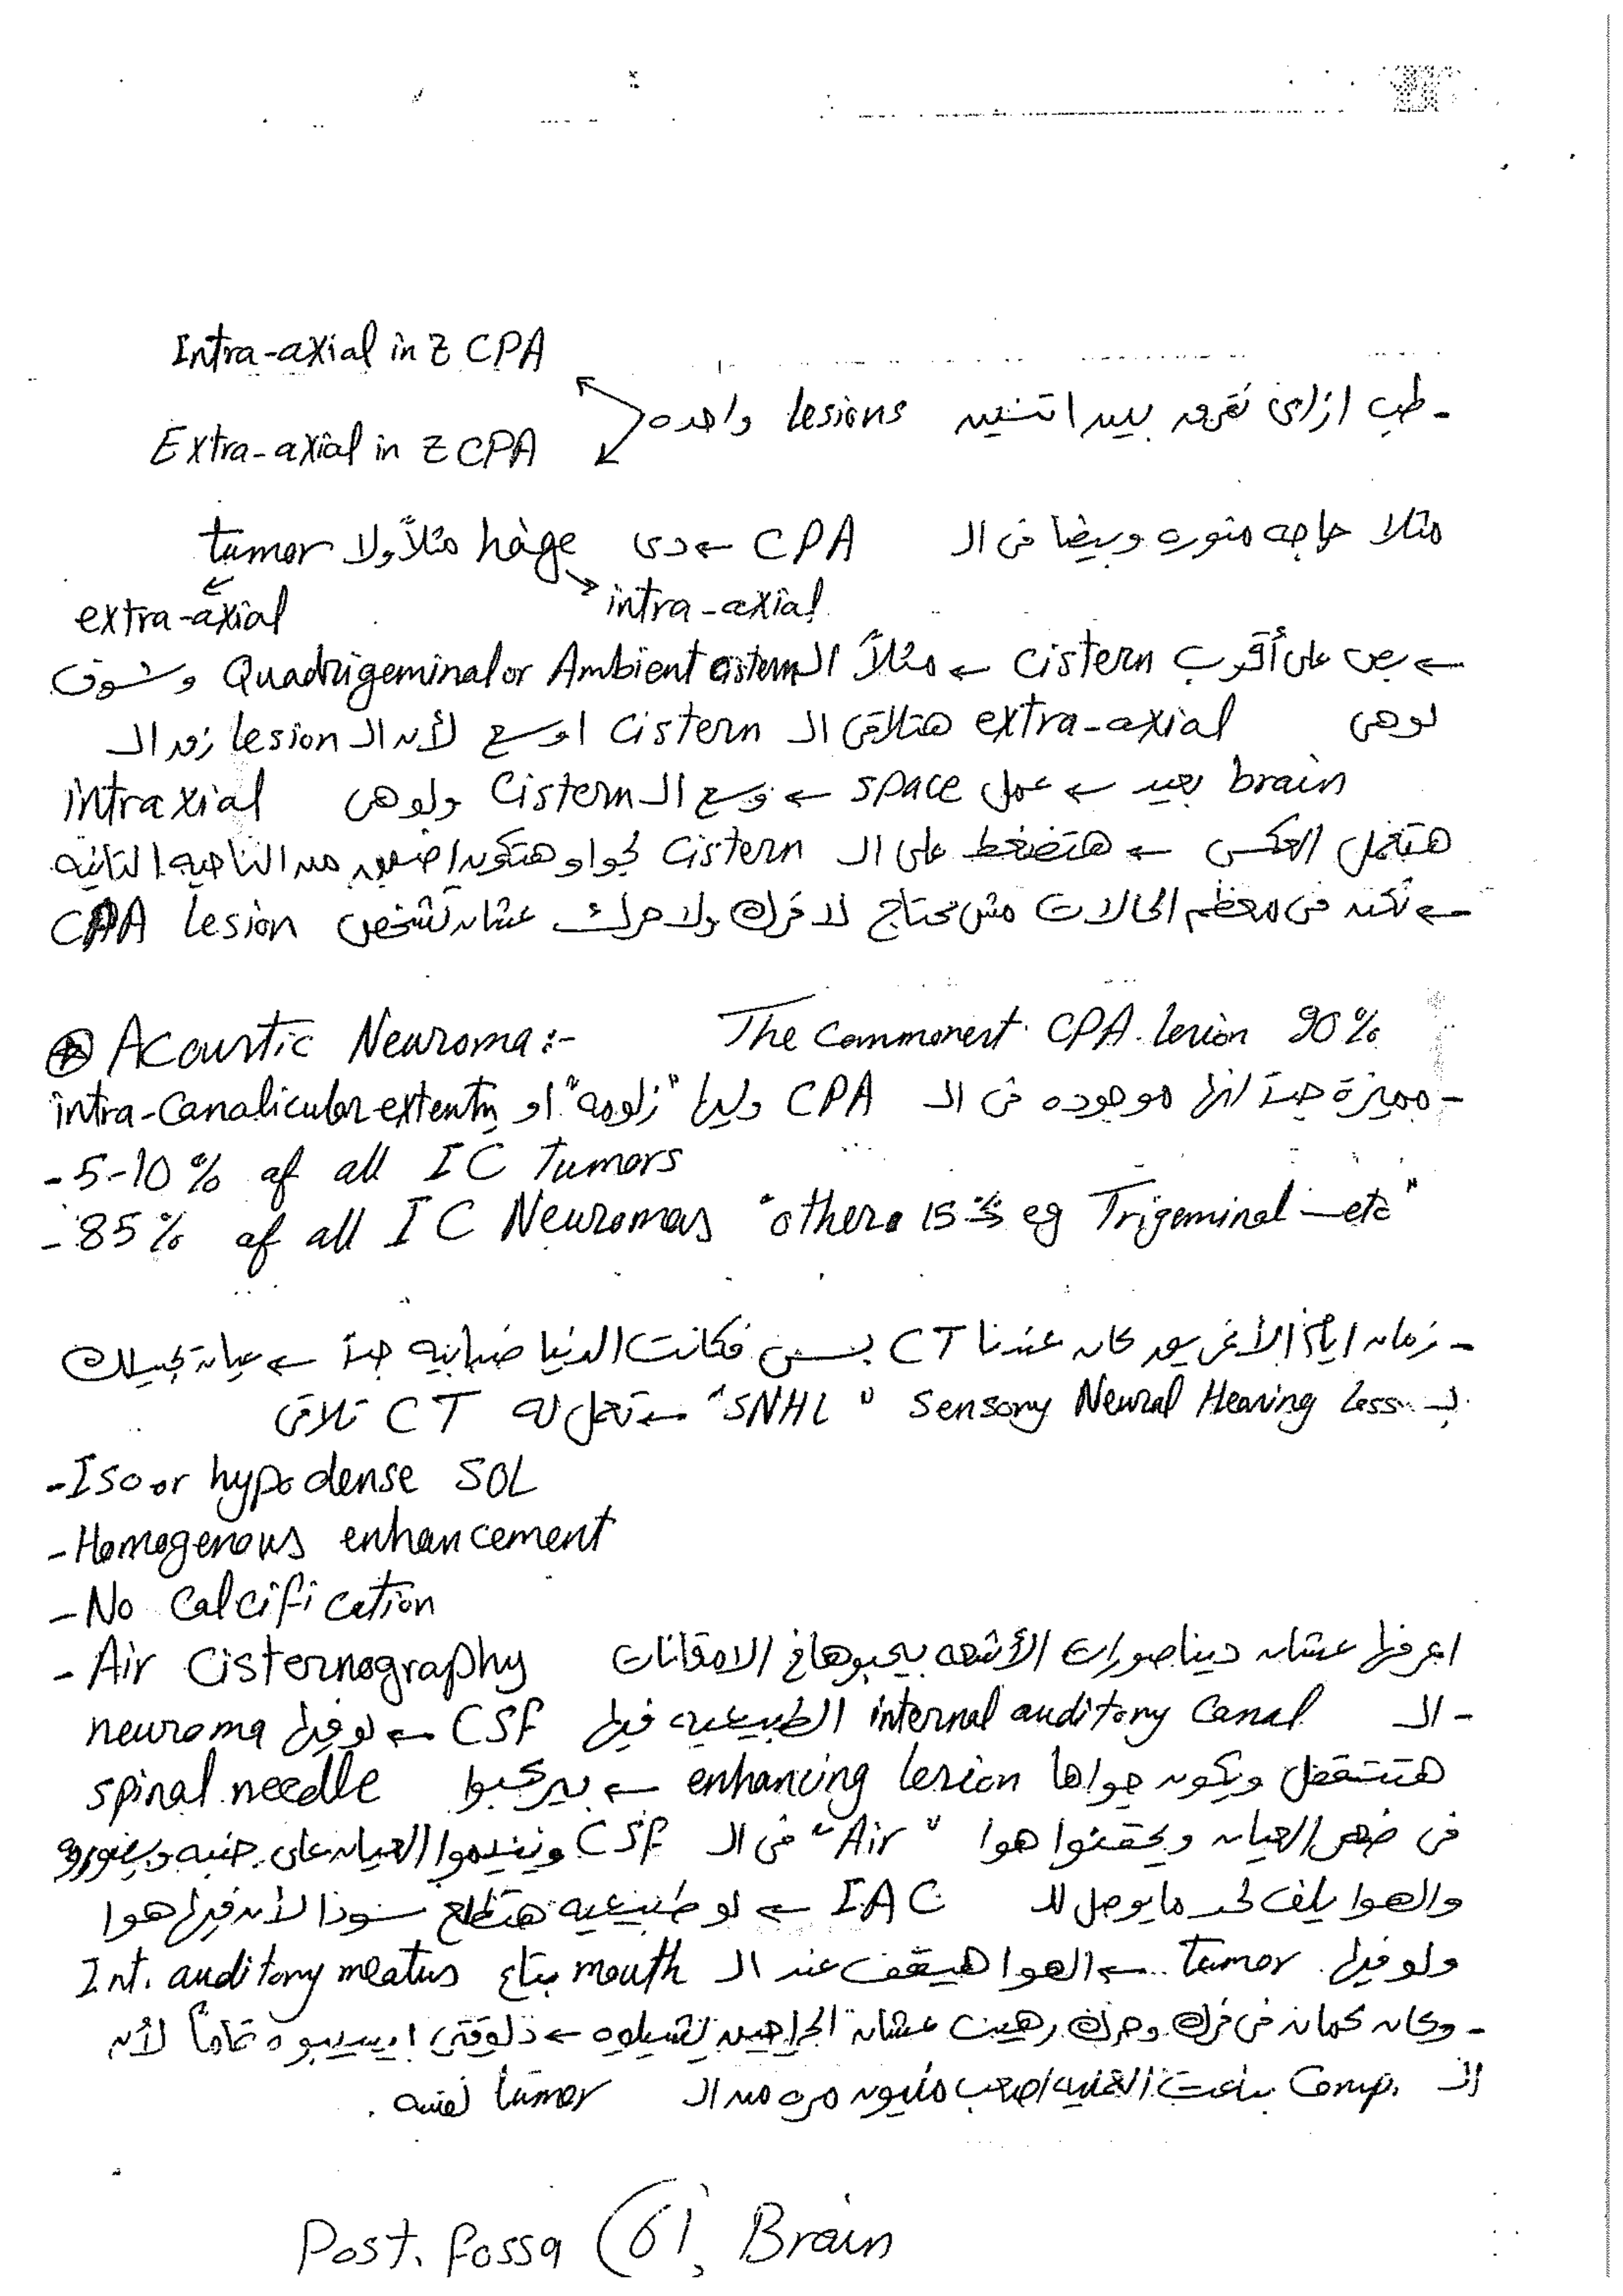 Intra-axial in Z CPA
- طب ازاى نفرق بين اتنين lesions واحده
Extra-axial in Z CPA
مثلا حاجه منوره وبيضا فى الـ CPA ← دى hage مثلاً ولا tumor
intra-axial
extra-axial
← بص على أقرب cistern ← مثلاً الـ Quadrigeminal or Ambient cistern وشوف
لوهى extra-axial هتلاقى الـ cistern اوسع لأن الـ lesion زقت الـ
brain بعيد ← عمل space ← وسع الـ cistern ولوهى intraxial
هتعمل العكس ← هتضغط على الـ cistern لجوا وهتكون اضيق من الناحيه التانيه
← لكن فى معظم الحالات مش محتاج لا فرك ولا حرك عشان تشخص CPA lesion
⊛ Acoustic Neuroma :- The commonest CPA lesion 90%
- مميزة جداً انها موجوده فى الـ CPA وليها "زلومه" او intra-Canalicular extent
- 5-10% of all IC Tumors
- 85% of all IC Neuromas "others 15% eg Trigeminal — etc"
- زمان ايام الأغريق كان عندنا CT بس فكانت الدنيا ضبابيه جداً ← عيان يجيلك
بـ Sensory Neural Hearing Loss "SNHL" ← تعمل له CT تلاقى
- Iso or hypodense SOL
- Homogenous enhancement
- No Calcification
- Air Cisternography اعرفها عشان ديناصورات الأشعه بيحبوها فى الامتحانات
- الـ internal auditory Canal الطبيعيه فيها CSF ← لو فيها neuroma
هتتقفل ويكون جواها enhancing lesion ← بيركبوا spinal needle
فى ضهر العيان ويحقنوا هوا "Air" فى الـ CSF وينيموا العيان على جنبه ويصوروه
والهوا يلف لحد مايوصل للـ IAC ← لو طبيعيه هتطلع سودا لأن فيها هوا
ولو فيها tumor ← الهوا هيقف عند الـ mouth بتاع Int. auditory meatus
- وكان كمان فى فرك وحرك رهيب عشان الجراحين يشيلوه ← دلوقتى بيسيبوه تماماً لأن
الـ Comp. بتاعت العمليه اصعب مليون مره من الـ tumor نفسه .
Post. fossa (61) Brain